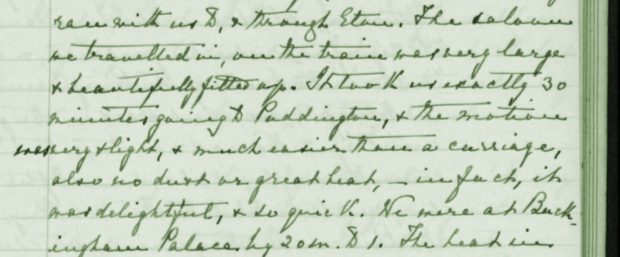 ran with us to, & through Eton. The saloon
we travelled in, on the train was very large
& beautifully fitted up. It took us exactly 30
minutes going to Paddington, & the motion
was very slight, & much easier than a carriage,
also no dust or great heat, — in fact, it
was delightful, & so quick. We were at Buck-
ingham Palace by 20 m. to 1. The heat in